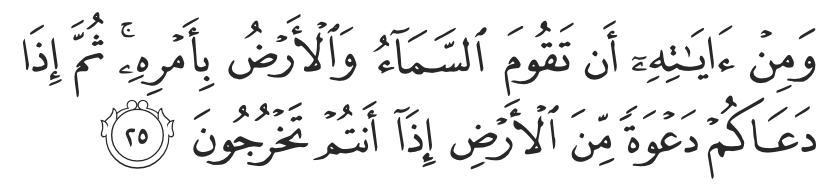 وَمِنْ ءَايَـٰتِهِۦٓ أَن تَقُومَ ٱلسَّمَآءُ وَٱلْأَرْضُ بِأَمْرِهِۦ ۚ ثُمَّ إِذَا
دَعَاكُمْ دَعْوَةً مِّنَ ٱلْأَرْضِ إِذَآ أَنتُمْ تَخْرُجُونَ ٢٥